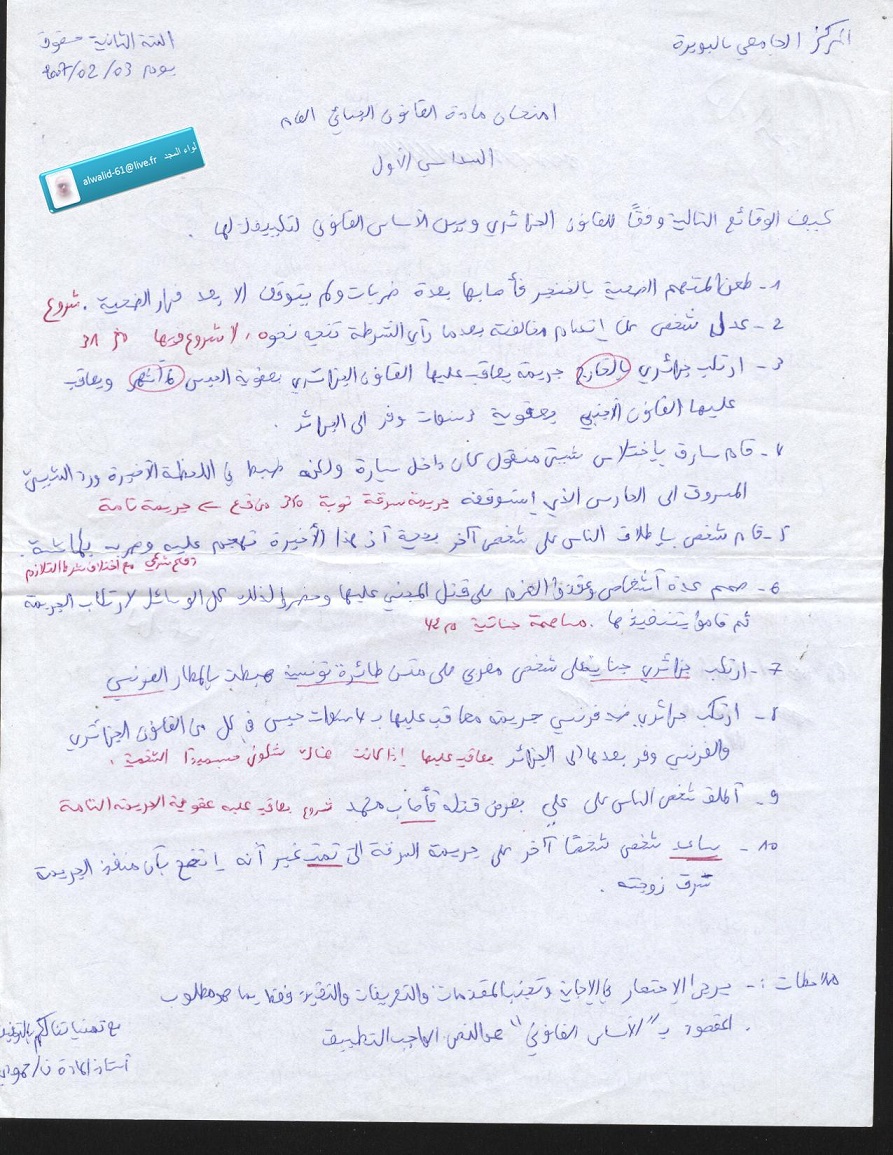 المركز الجامعي بالبويرة
السنة الثانية حقوق
يوم 2007/02/03
امتحان مادة القانون الجنائي العام
السداسي الأول
لواء المجد alwalid-61@live.fr
كيف الوقائع التالية وفقًا للقانون الجزائري وبين الأساس القانوني لتكييفك لها .
1- طعن المتهم الضحية بالخنجر فأصابها بعدة ضربات ولم يتوقف إلا بعد فرار الضحية . شروع
2- عدل شخص عن إتمام مخالفة بعدما رأى الشرطة تتجه نحوه ، لا شروع فيها م 31
3- ارتكب جزائري بالخارج جريمة يعاقب عليها القانون الجزائري بعقوبة الحبس 6 أشهر ويعاقب
عليها القانون الأجنبي بعقوبة 3 سنوات وفر الى الجزائر .
4- قام سارق بإختلاس شيئ منقول كان داخل سيارة ولكنه ضبط في اللحظة الأخيرة ورد الشيئ
المسروق الى الحارس الذي استوقفه جريمة سرقة توبة 350 من ق ع => جريمة تامة
5- قام شخص بإطلاق الناس على شخص آخر بدعية أن هذا الأخيرة تهجم عليه وضربه بكماشة .
دفاع شرعي مع اختلاف شرط التلازم
6- صمم عدة أشخاص وعقدوا العزم على قتل المجني عليها وحضروا لذلك كل الوسائل لارتكاب الجريمة
ثم قاموا بتنفيذها . مساهمة جنائية م 42
7- ارتكب جزائري جناية على شخص مصري على متن طائرة تونسية هبطت بالمطار الفرنسي
8- ارتكب جزائري ضد فرنسي جريمة معاقب عليها بـ سنوات حبس في كل من القانون الجزائري
والفرنسي وفر بعدها الى الجزائر يعاقب عليها إذا كانت هناك شكوى
9- أطلق شخص الناس على علي بغرض قتله فأصاب مهد شروع يعاقب عليه عقوبة الجريمة التامة
10- ساعد شخص شخصًا آخر على جريمة السرقة التي تمت غير أنه إتضح بأن منفذ الجريمة
سرق زوجته .
ملاحظات :- يرجى الإختصار في الإجابة وتجنب المقدمات والتعريفات والتقيد فقط بما هو مطلوب
. المقصود بـ "الأساس القانوني" هو النص الواجب التطبيق
مع تمنياتنا لكم بالتوفيق
أستاذ المادة